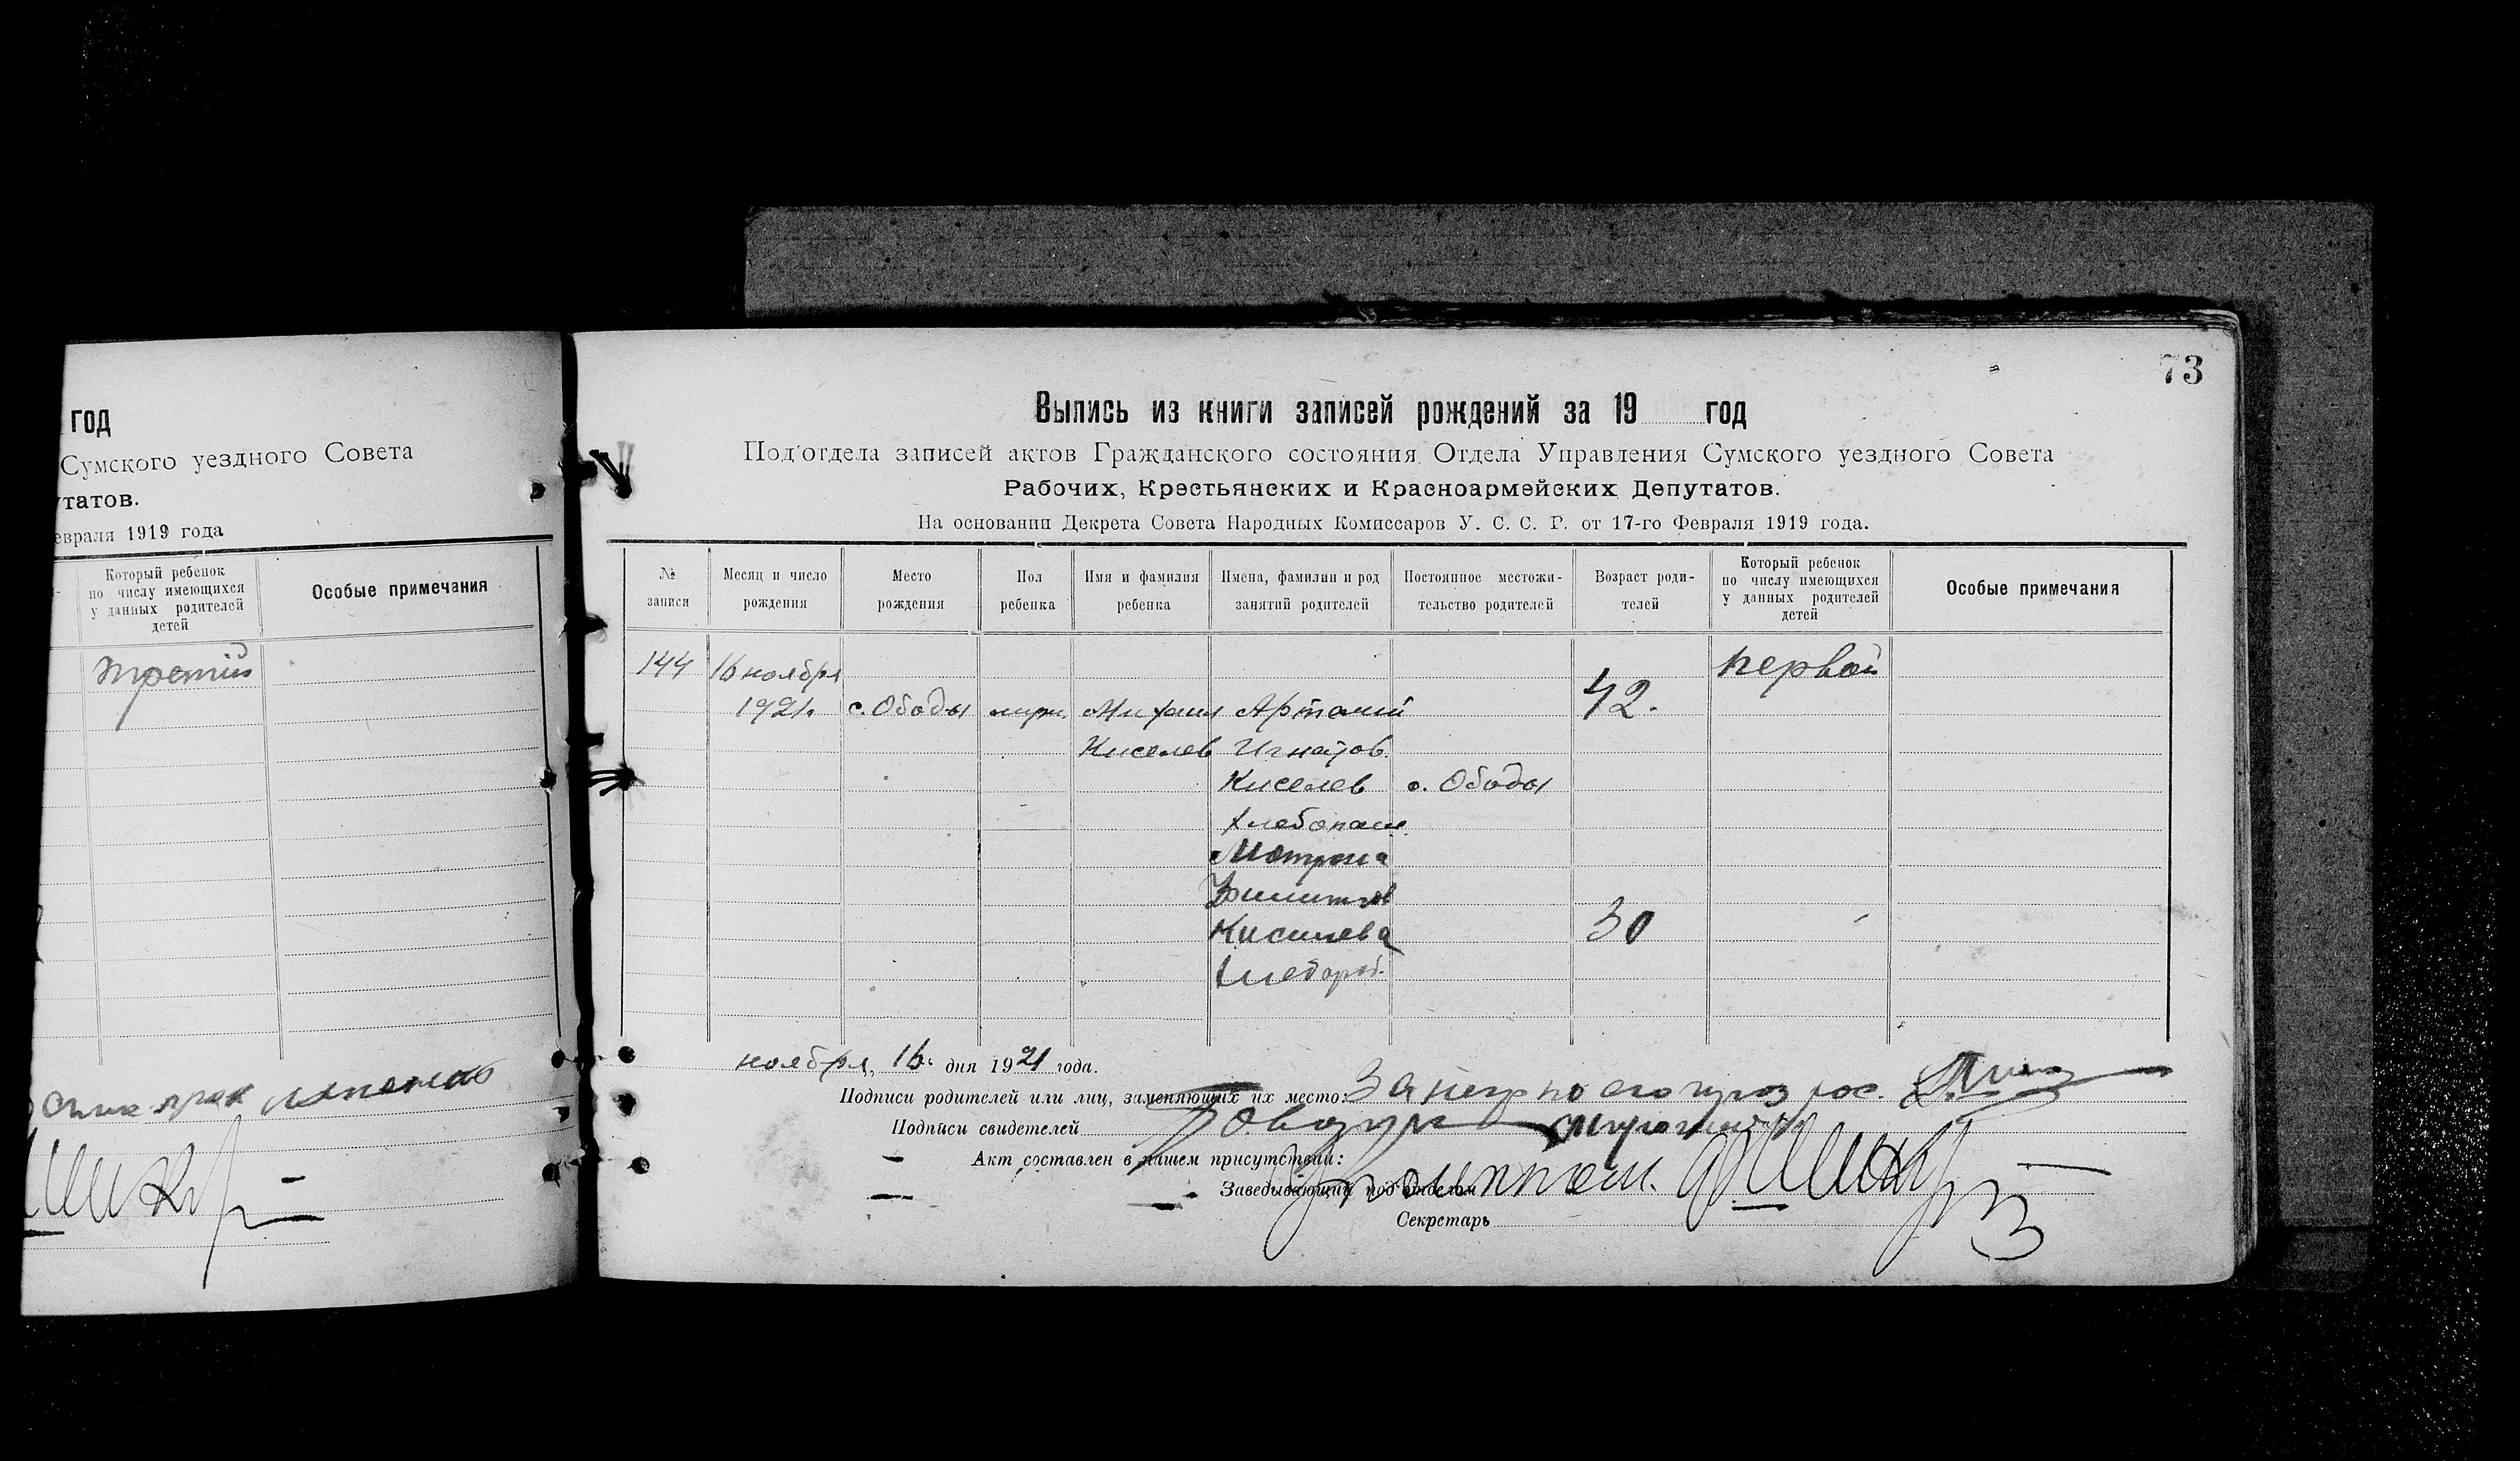 год
Сумского уездного Совета
утатов.
евраля 1919 года
Который ребенок
по числу имеющихся
у данных родителей
детей
Особые примечания
третий
73
Выпись из книги записей рождений за 19 год
Под'отдела записей актов Гражданского состояния Отдела Управления Сумского уездного Совета
Рабочих, Крестьянских и Красноармейских Депутатов.
На основании Декрета Совета Народных Комиссаров У. С. С. Р. от 17-го Февраля 1919 года.
№ записи
Месяц и число рождения
Место рождения
Пол ребенка
Имя и фамилия ребенка
Имена, фамилии и род занятий родителей
Постоянное местожи-
тельство родителей
Возраст роди-
телей
Который ребенок
по числу имеющихся
у данных родителей
детей
Особые примечания
144 16 ноября первой
1921. с. Ободы Михаил Артемий 42.
Киселев Игнатов
Киселев с. Ободы
хлебопаш.
Мотрона
Киселева 30
ноября, 16. дня 1921 года.
Подписи родителей или лиц, заменяющих их место: За негр по его
Подписи свидетелей
Акт составлен в нашем присутствии:
Заведывающий под'отделом
Секретарь